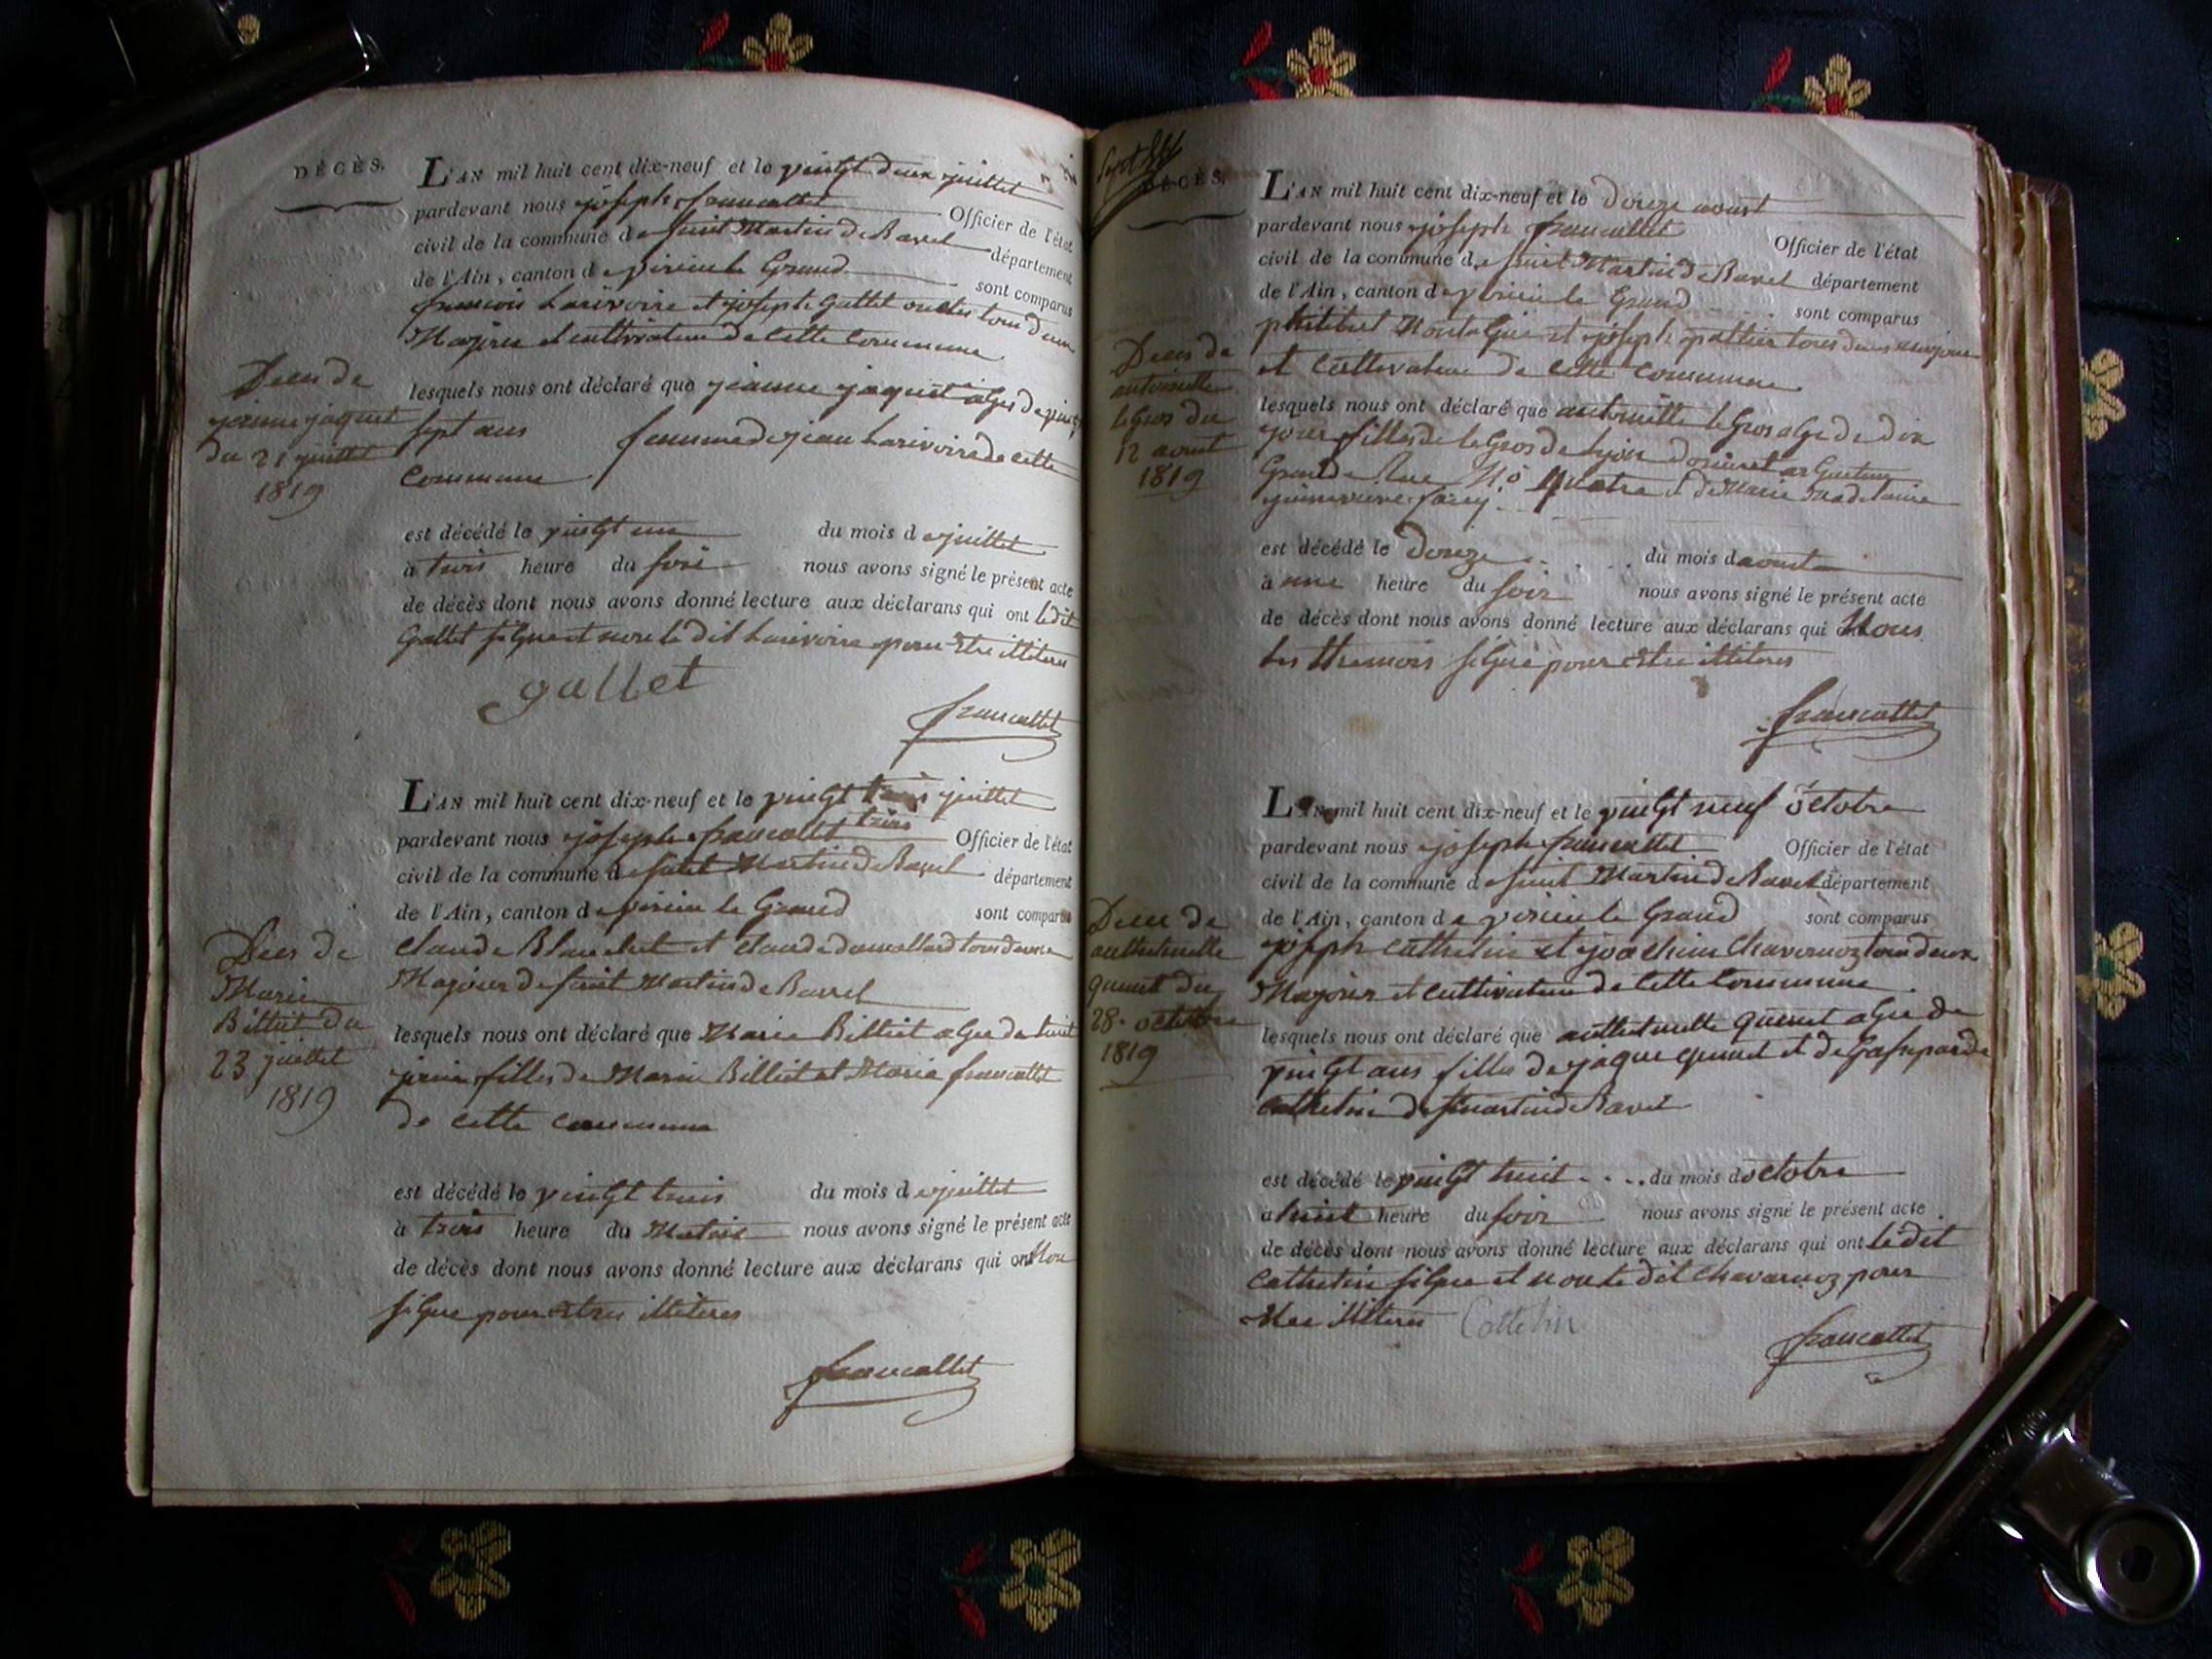 DÉCÈS.
L'AN mil huit cent dix-neuf et le vingt deux juillet
pardevant nous joseph francallet Officier de l'état
civil de la commune de saint Martin de Bavel département
de l'Ain, canton de virieu le Grand sont comparus
francois Larivoire et joseph Gallet tous deux
Majeurs et cultivateur de cette Commune.
Deces de
jeanne jaquet
du 21 juillet
1819
lesquels nous ont déclaré que jeanne jaquet agée de vingt
sept ans femme de jean Larivoire de cette
Commune
est décédé le vingt un du mois de juillet
à trois heure du soir nous avons signé le présent acte
de décès dont nous avons donné lecture aux déclarans qui ont ledit
Gallet signé et non le dit Larivoire pour Etre illiteres
gallet
francallet
L'AN mil huit cent dix-neuf et le vingt trois juillet
trois
pardevant nous joseph francallet Officier de l'état
civil de la commune de saint Martin de Bavel département
de l'Ain, canton de virieu le Grand sont comparus
Claude Blanchet et Claude tous deux
Majeurs de saint Martin de Bavel
Deces de
Marie
Billiet du
23 juillet
1819
lesquels nous ont déclaré que Marie Billiet agée de huit
jours filles de Marin Billiet et Marie francallet
de cette commune
est décédé le vingt trois du mois de juillet
à trois heure du Matin nous avons signé le présent acte
de décès dont nous avons donné lecture aux déclarans qui ont Non
signe pour Etres illiteres
francallet
DÉCÈS.
L'AN mil huit cent dix-neuf et le douze aoust
pardevant nous joseph francallet Officier de l'état
civil de la commune de saint Martin de Bavel département
de l'Ain, canton de virieu le Grand sont comparus
philibert Montagnier et joseph pottier tous deux majeurs
et Cultivateur de cette commune
Deces de
antoinette
le Gros du
12 aoust
1819
lesquels nous ont déclaré que antoinette le Gros agé de dix
jours filles de le Gros de Lyon
Grande Rue No quatre et de Marie Madelaine
est décédé le douze du mois d aoust
à une heure du soir nous avons signé le présent acte
de décès dont nous avons donné lecture aux déclarans qui ont Nous
les themois signé pour Etre illiteres
francallet
L'AN mil huit cent dix-neuf et le vingt neuf octobre
pardevant nous joseph francallet Officier de l'état
civil de la commune de saint Martin de Bavel département
de l'Ain, canton de virieu le Grand sont comparus
joseph Cathelin et joachim Chavornoz tous deux
Majeurs et Cultivateur de cette Commune.
Deces de
anthelmette
quenet du
28 octobre
1819
lesquels nous ont déclaré que anthelmette quenet agée de
vingt ans filles de jaque quenet et de Gasparde
Cathelin de st martin de Bavel
est décédé le vingt huit du mois d octobre
à huit heure du soir nous avons signé le présent acte
de décès dont nous avons donné lecture aux déclarans qui ont ledit
Cathelin signe et non le dit Chavornoz pour
Etre illiteres Cattelin
francallet